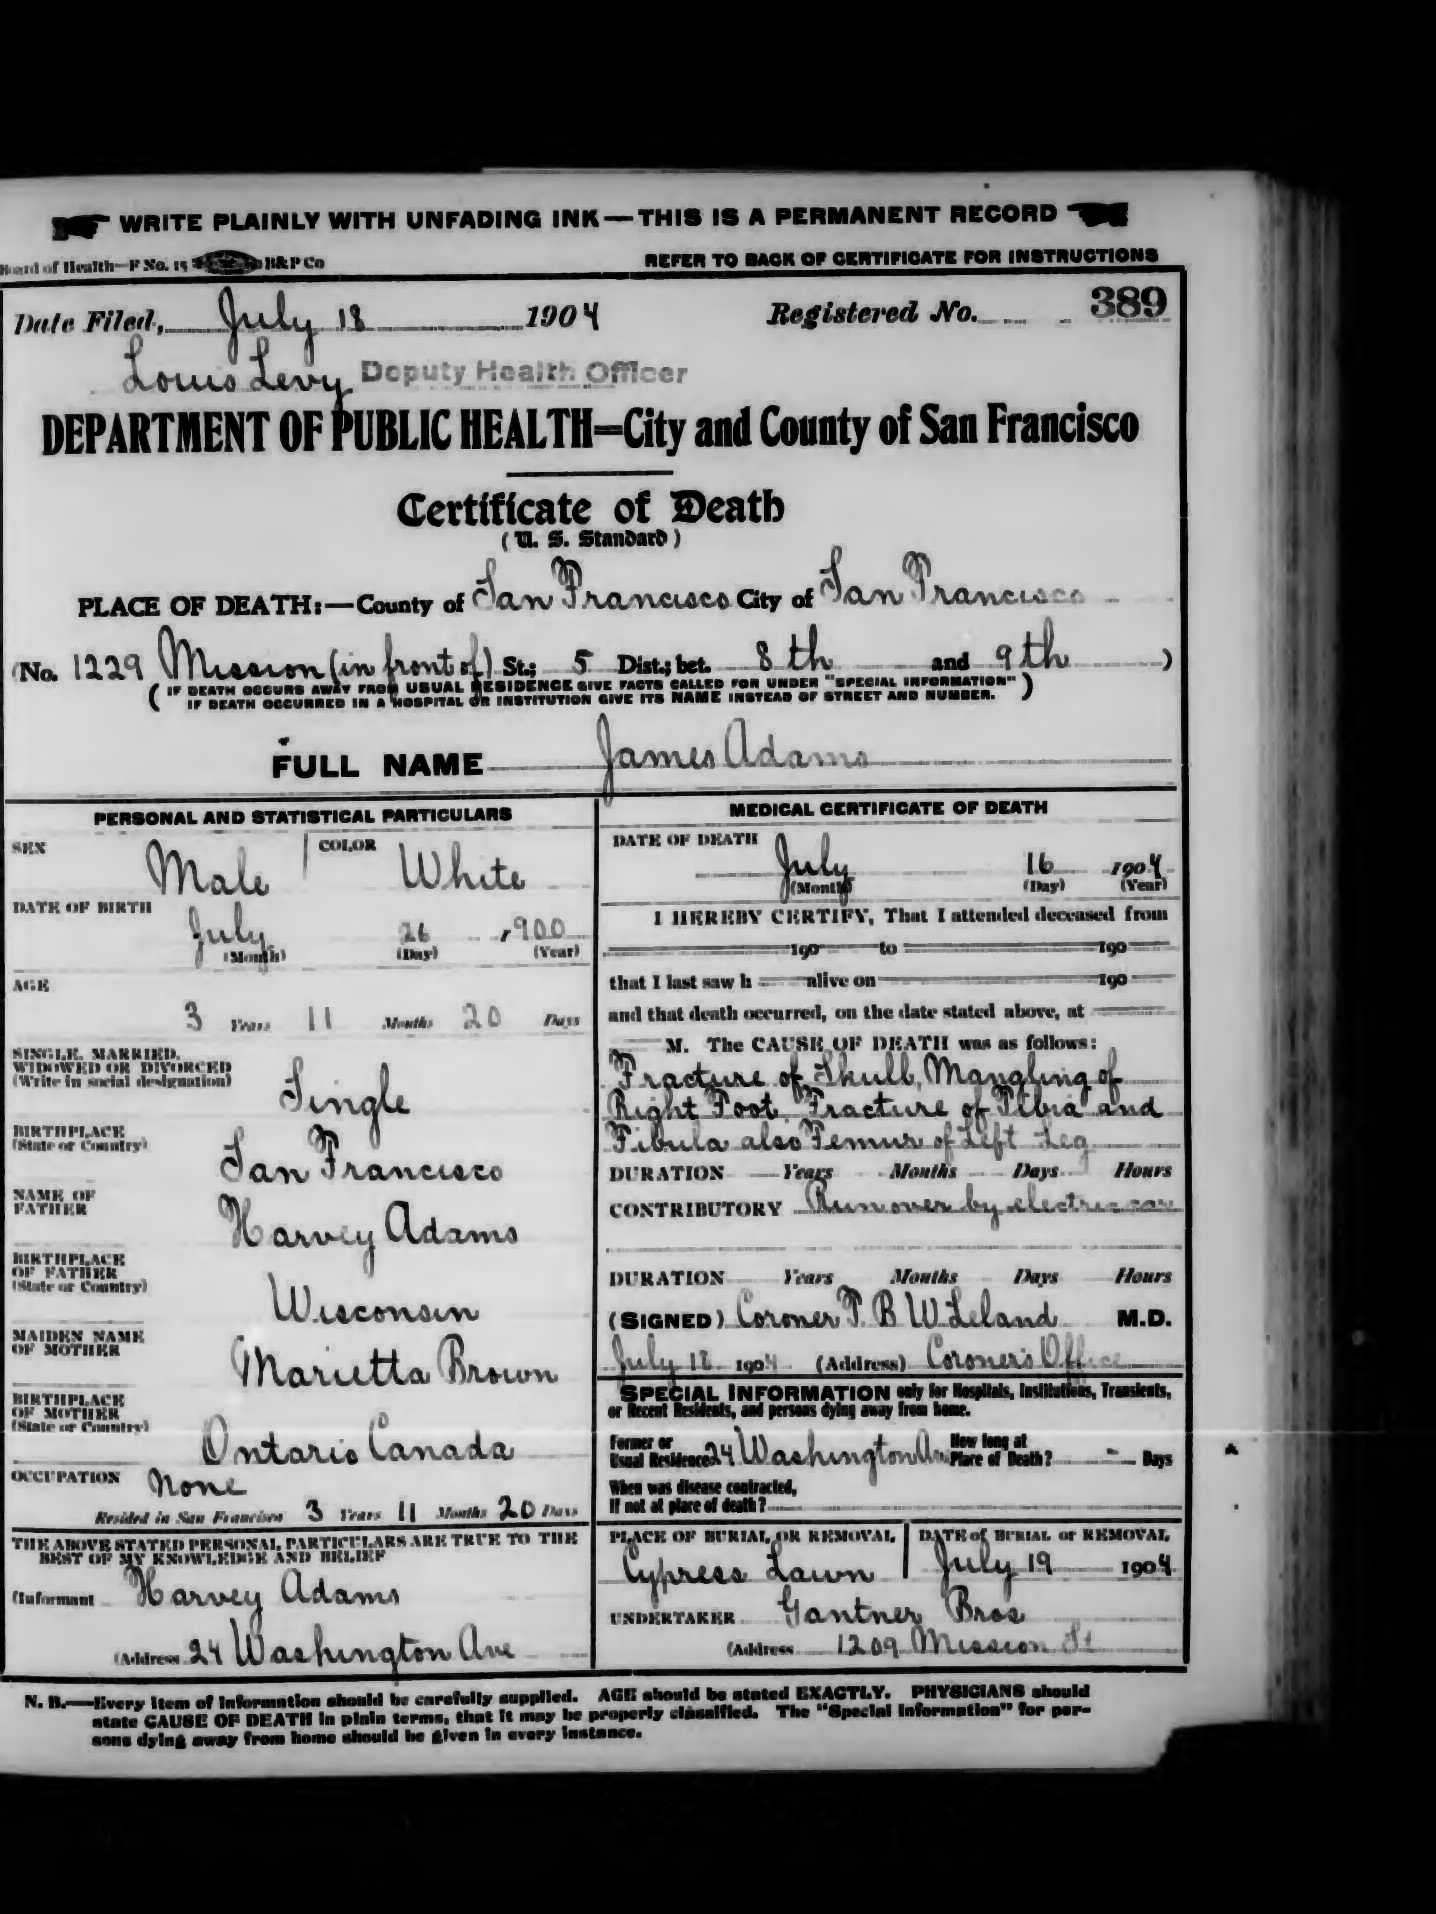 WRITE PLAINLY WITH UNFADING INK—THIS IS A PERMANENT RECORD
Board of Health—F No. 15 B&P Co
REFER TO BACK OF CERTIFICATE FOR INSTRUCTIONS
Date Filed, July 18 1904 Registered No. 389
Louis Levy Deputy Health Officer
DEPARTMENT OF PUBLIC HEALTH=City and County of San Francisco
Certificate of Death
(U. S. Standard)
PLACE OF DEATH:—County of San Francisco City of San Francisco
(No. 1229 Mission (in front of) St.; 5 Dist.; bet. 8th and 9th )
( IF DEATH OCCURS AWAY FROM USUAL RESIDENCE GIVE FACTS CALLED FOR UNDER "SPECIAL INFORMATION" )
IF DEATH OCCURRED IN A HOSPITAL OR INSTITUTION GIVE ITS NAME INSTEAD OF STREET AND NUMBER.
FULL NAME James Adams
PERSONAL AND STATISTICAL PARTICULARS
SEX Male COLOR White
DATE OF BIRTH
July 26 1900
(Month) (Day) (Year)
AGE
3 Years 11 Months 20 Days
SINGLE, MARRIED,
WIDOWED OR DIVORCED
(Write in social designation)
Single
BIRTHPLACE
(State or Country)
San Francisco
NAME OF
FATHER
Harvey Adams
BIRTHPLACE
OF FATHER
(State or Country)
Wisconsin
MAIDEN NAME
OF MOTHER
Marietta Brown
BIRTHPLACE
OF MOTHER
(State or Country)
Ontario Canada
OCCUPATION None
Resided in San Francisco 3 Years 11 Months 20 Days
THE ABOVE STATED PERSONAL PARTICULARS ARE TRUE TO THE
BEST OF MY KNOWLEDGE AND BELIEF
(Informant Harvey Adams
(Address 24 Washington Ave
MEDICAL CERTIFICATE OF DEATH
DATE OF DEATH
July 16 1904
(Month) (Day) (Year)
I HEREBY CERTIFY, That I attended deceased from
190 to 190
that I last saw h alive on 190
and that death occurred, on the date stated above, at
M. The CAUSE OF DEATH was as follows:
Fracture of Skull, Mangling of
Right Foot Fracture of Tibia and
Fibula also Femur of Left Leg
DURATION Years Months Days Hours
CONTRIBUTORY Run over by electric car
DURATION Years Months Days Hours
(SIGNED) Coroner T. B W Leland M.D.
July 18 1904 (Address) Coroner's Office
SPECIAL INFORMATION only for Hospitals, Institutions, Transients,
or Recent Residents, and persons dying away from home.
Former or
Usual Residence 24 Washington Ave
How long at
Place of Death? - Days
When was disease contracted,
If not at place of death?
PLACE OF BURIAL OR REMOVAL
Cypress Lawn
DATE of BURIAL or REMOVAL
July 19 1904
UNDERTAKER Gantner Bros
(Address 1209 Mission St
N. B.—Every item of information should be carefully supplied. AGE should be stated EXACTLY. PHYSICIANS should
state CAUSE OF DEATH in plain terms, that it may be properly classified. The "Special Information" for per-
sons dying away from home should be given in every instance.